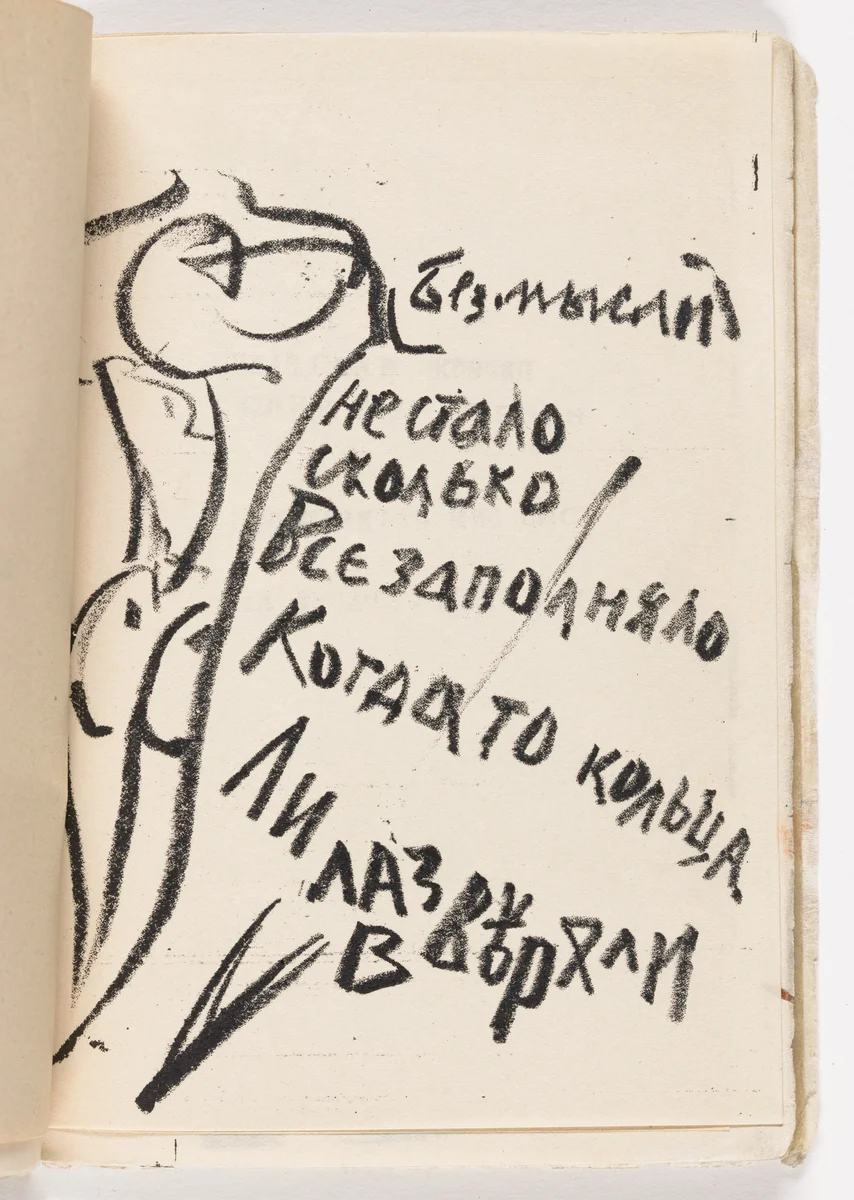 Без мыслий
не стало
сколько
Все заполняло
Когда то кольца
Ли
лазври
в